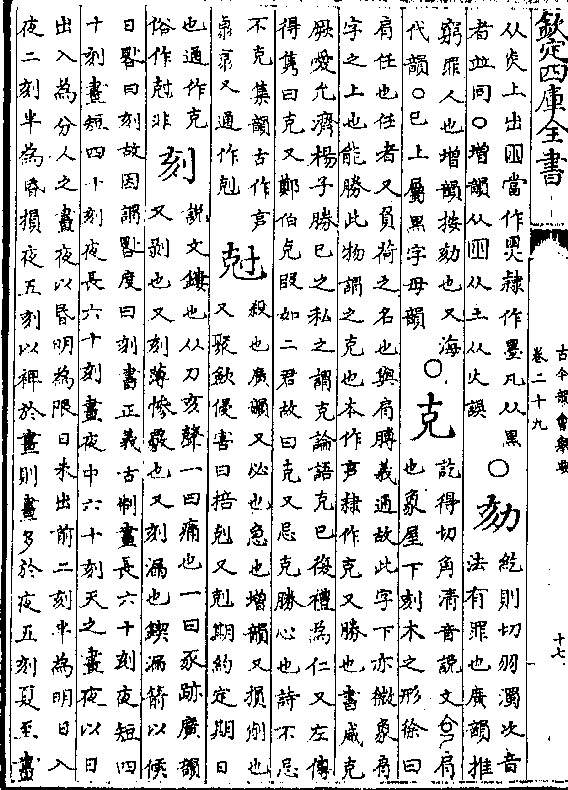 欽定四庫全書
古今韻會舉要
卷二十九
十七
从炎上出囪當作㷠隸作墨凡从黑
者並同○增韻从囪从土从火誤
○劾
紇則切羽濁次音
法有罪也廣韻推
窮罪人也增韻按劾也又海
代韻○已上屬黑字母韻
○克
訖得切角清音說文肩
也象屋下刻木之形徐曰
肩任也任者又負荷之名也與肩膊義通故此字下亦微象肩
字之上也能勝此物謂之克也本作隸作克又勝也書威克
厥愛允濟楊子勝已之私之謂克論語克已復禮為仁又左傳
得雋曰克又鄭伯克段如二君故曰克又忌克勝心也詩不忌
不克集韻古作
又通作剋
尅
殺也廣韻又必也急也增韻又損削也
又聚斂侵害曰掊剋又剋期約定期日
也通作克
俗作尅非
刻
說文鏤也从刀亥聲一曰痛也一曰豕跡廣韻
又剥也又刻薄慘覈也又刻漏也鍥漏箭以候
日晷曰刻故因謂晷度曰刻書正義古制晝長六十刻夜短四
十刻晝短四十刻夜長六十刻晝夜中六十刻天之晝夜以日
出入為分人之晝夜以昏明為限日未出前二刻半為明日入
夜二刻半為昏損夜五刻以裨於晝則晝多於夜五刻夏至晝